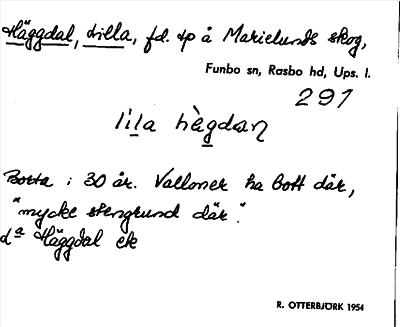 Häggdal, Lilla, fd. tp å Marielunds skog,
Funbo sn, Rasbo hd, Ups. l.
291
lila hègdan
Borta i 30 år. Valloner ha bott där,
"mycke stengrund där".
dª Häggdal ek
R. OTTERBJÖRK 1954